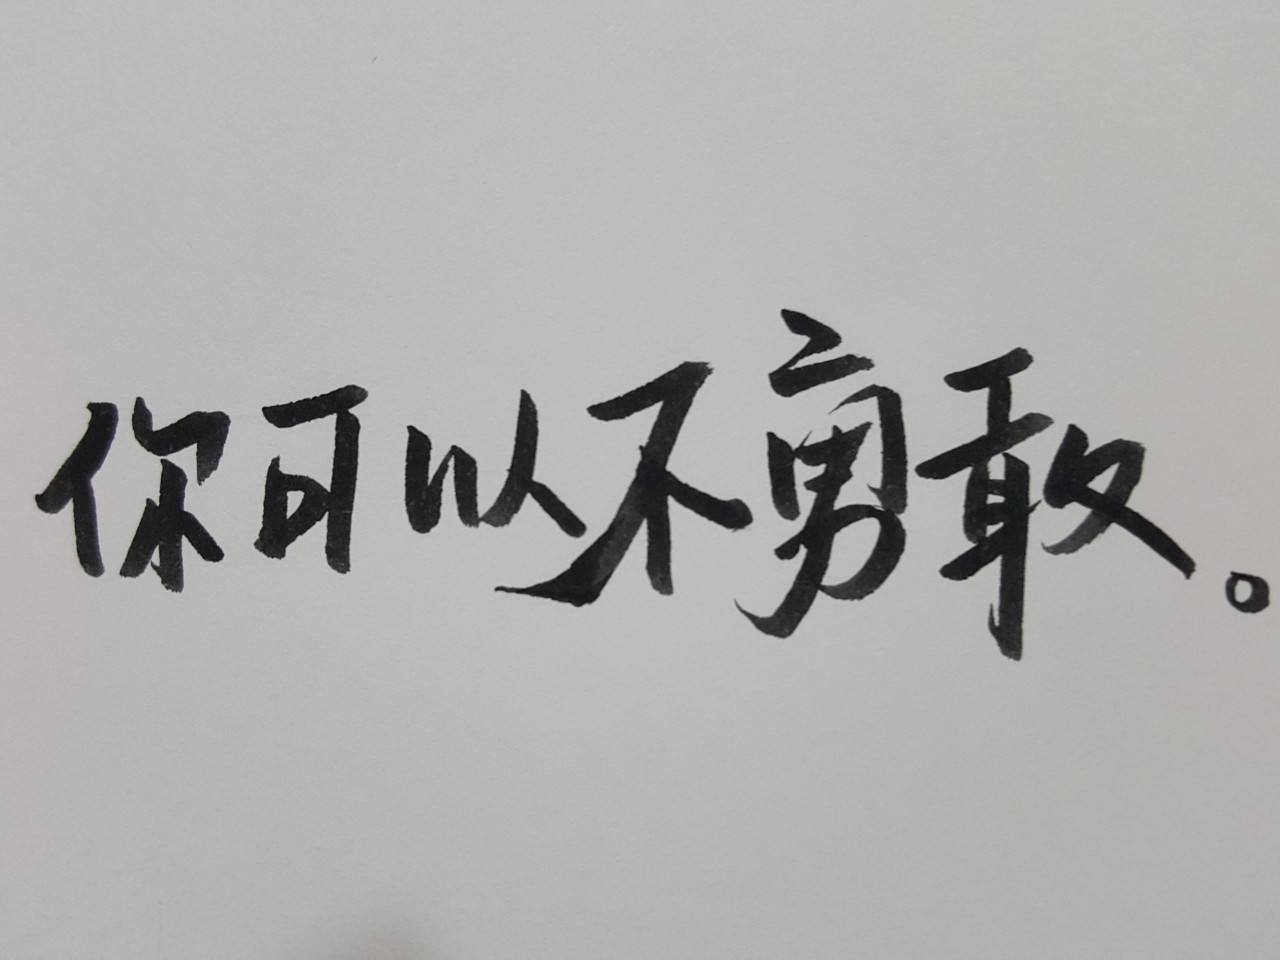 你可以不勇敢。